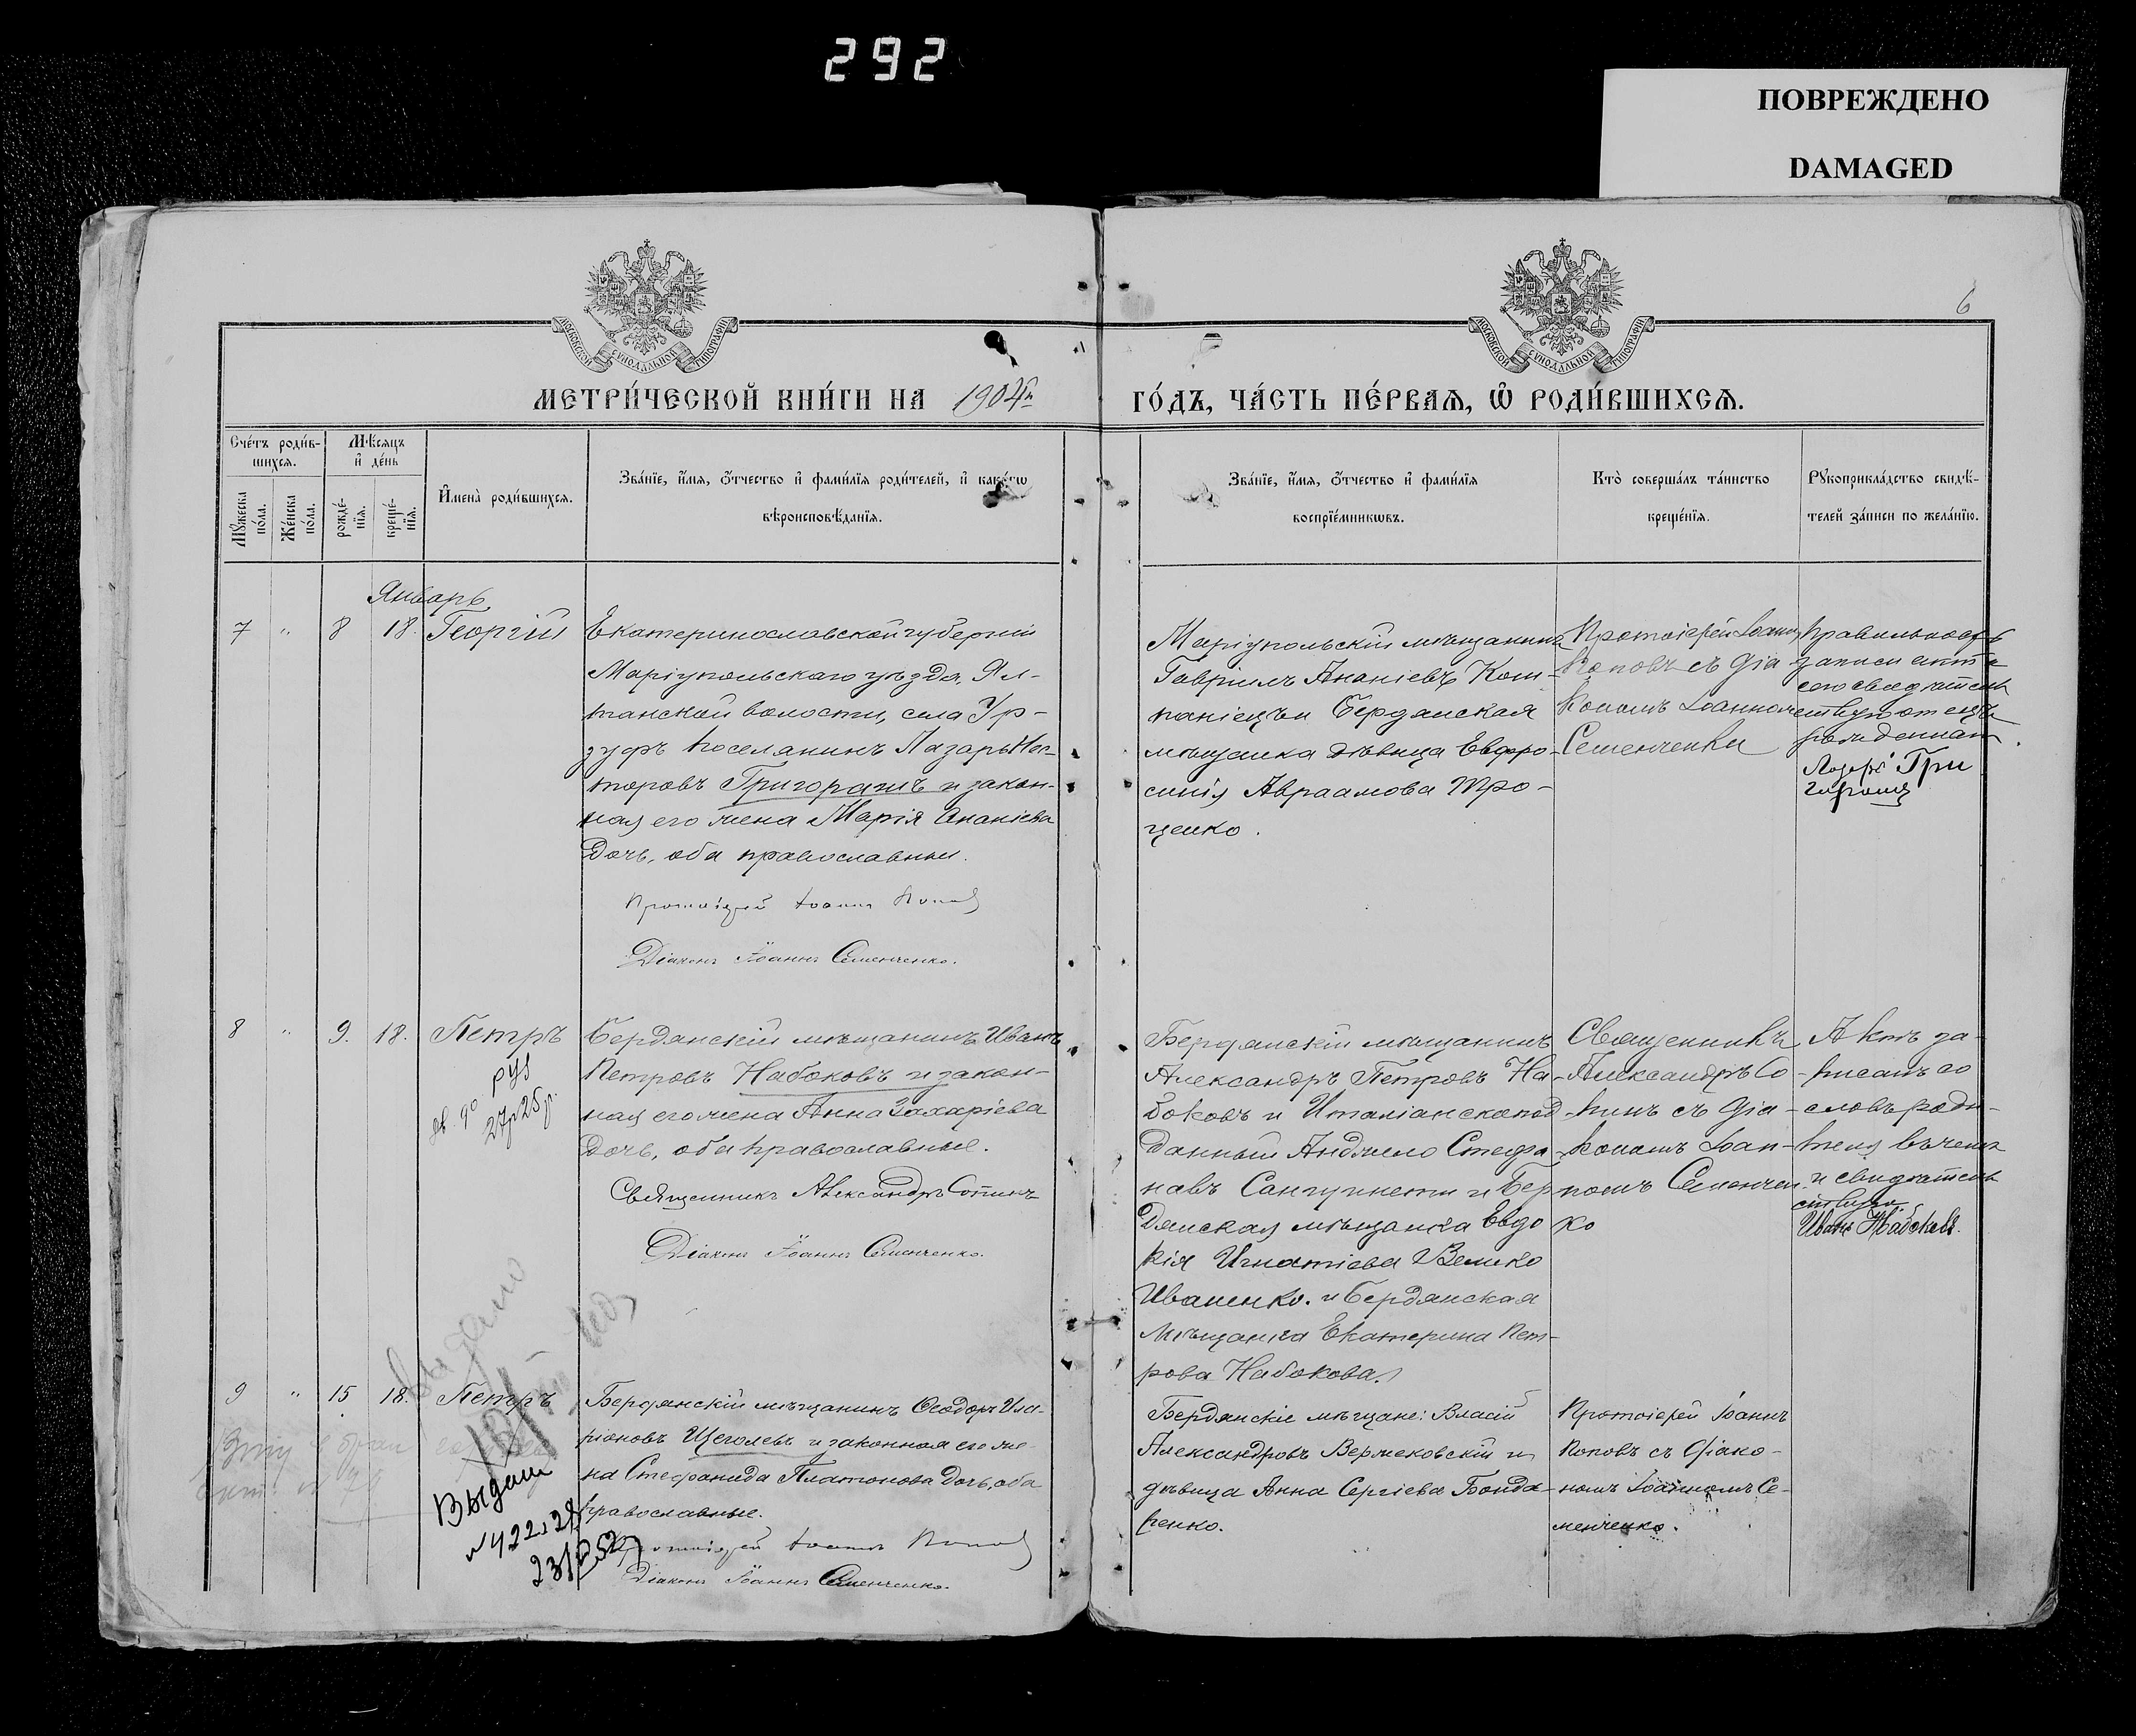 292
ПОВРЕЖДЕНО
DAMAGED
6
МОСКОВСКОЙ СѴНОДАЛЬНОЙ ТИПОГРАФІИ
МОСКОВСКОЙ СѴНОДАЛЬНОЙ ТИПОГРАФІИ
МЕТРИ́ЧЕСКОЙ КНИ́ГИ НА 1904й ГО́ДЪ, ЧА́СТЬ ПЕ́РВАѦ, Ѽ РОДИ́ВШИХСѦ.
Сче́тъ роди́в-
шихсѧ.
Мѣ́сѧцъ
и҆ де́нь
Мꙋ́жеска
по́ла.
Же́нска
по́ла.
рожде́-
нїѧ.
креще́-
нїѧ.
И҆мена̀ роди́вшихсѧ.
Зва́нїе, и҆́мѧ, ѻ҆́тчество и҆ фами́лїѧ роди́телей, и҆ како́гѡ
вѣроисповѣ́данїѧ.
Зва́нїе, и҆́мѧ, ѻ҆́тчество и҆ фами́лїѧ
воспрїе́мникѡвъ.
Кто̀ соверша́лъ та́инство
креще́нїѧ.
Рꙋкоприкла́дство свидѣ́-
телей за́писи по жела́нїю.
Январь
7 " 8 18. Георгій
Екатеринославской губерніи
Маріупольскаго уѣзда, Ял-
танской волости, села Ур-
зуфъ поселянинъ Лазарь Нес-
торовъ Григорашъ и закон-
ная его жена Марія Ананіева
дочь, оба православные.
Протоіерей Іоаннъ Поповъ
Діаконъ Іоаннъ Семенченко.
Маріупольскій мѣщанинъ
Гавріилъ Ананіевъ Кот-
паніецъ и Бердянская
мѣщанка дѣвица Евфро-
синія Авраамова Тро-
ценко.
Протоіерей Іоаннъ
Поповъ съ діа
кономъ Іоанномъ
Семенченки
Правильность
записи акта
сего свидѣтель
ствую отецъ
рожденнаго
Лазарь Гри
горашъ
8 " 9. 18. Петръ
рус
27р25г.
Бердянскій мѣщанинъ Иванъ
Петровъ Набоковъ и закон-
ная его жена Анна Захаріева
дочь, оба православные.
Священникъ Александръ Сопинъ
Діаконъ Іоаннъ Семенченко.
Бердянскій мѣщанинъ
Александръ Петровъ На-
боковъ и Италіанскопод
данный Анджело Стефа
навъ Сангуинети и Бер
дянская мѣщанка Евдо
кія Игнатіева Велико
Иваненко. и Бердянская
мѣщанка Екатерина Пет-
рова Набокова.
Священникъ
Александръ Со
пинъ съ діа-
кономъ Іоан-
номъ Семенчен
ко
Актъ за-
писанъ со
словъ роди-
теля въ чемъ
и свидѣтель
ствую
Иванъ Набоковъ.
9 " 15 18. Петръ
Выдано
Выдали
23/
Бердянскій мѣщанинъ Ѳеодоръ Ила-
ріоновъ Щеголевъ и законная его же-
на Стефанида Платонова дочь, оба
православные.
Протоіерей Іоаннъ Поповъ
Діаконъ Іоаннъ Семенченко.
Бердянскіе мѣщане: Власій
Александровъ Вержековскій и
дѣвица Анна Сергіева Бонда-
ренко.
Протоіерей Іоаннъ
Поповъ съ діако-
номъ Іоанномъ Се-
менченко.